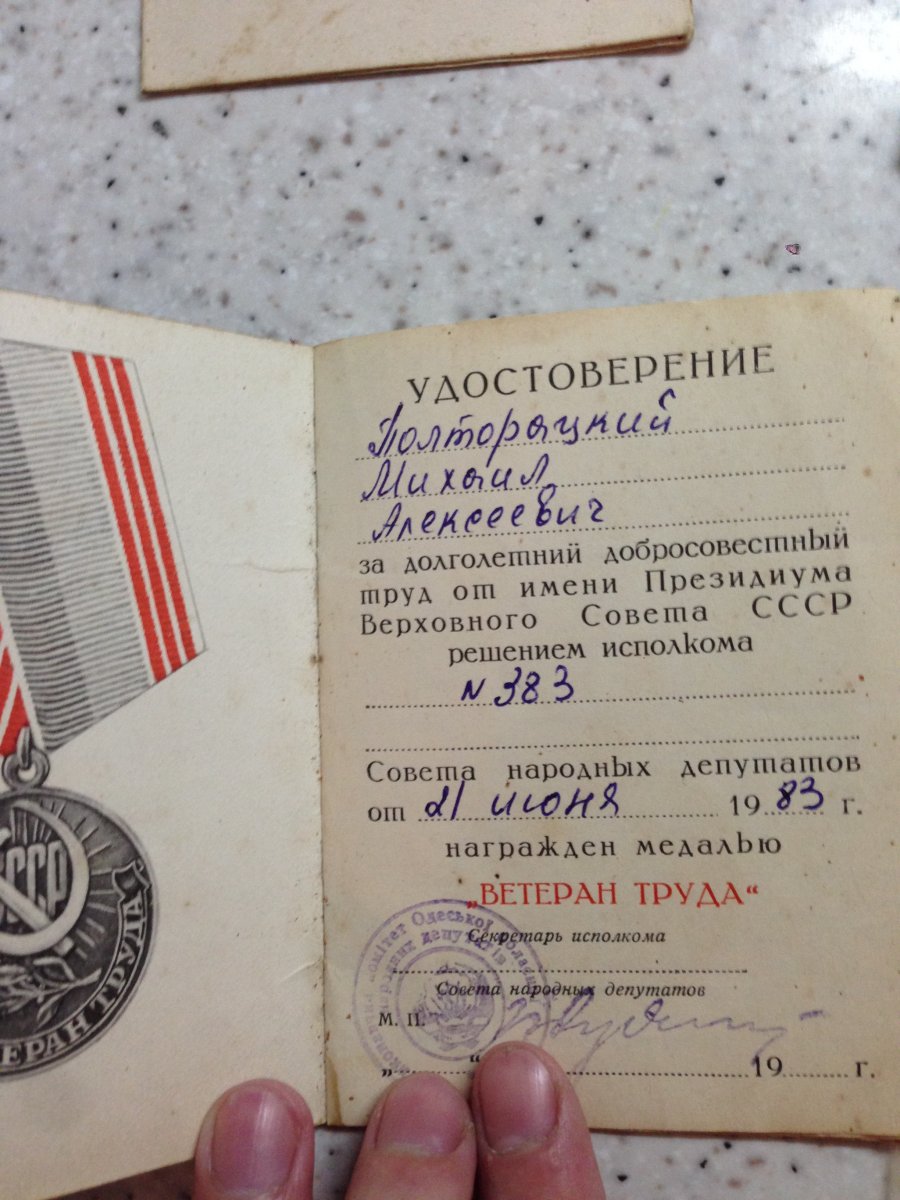 СССР
ВЕТЕРАН ТРУДА
УДОСТОВЕРЕНИЕ
Полторацкий
Михаил
Алексеевич
за долголетний добросовестный
труд от имени Президиума
Верховного Совета СССР
решением исполкома
N 383
Совета народных депутатов
от 21 июня 1983 г.
награжден медалью
„ВЕТЕРАН ТРУДА“
Секретарь исполкома
Совета народных депутатов
М. П.
„ “ 19 г.
комітет Одеської
народних депутатів